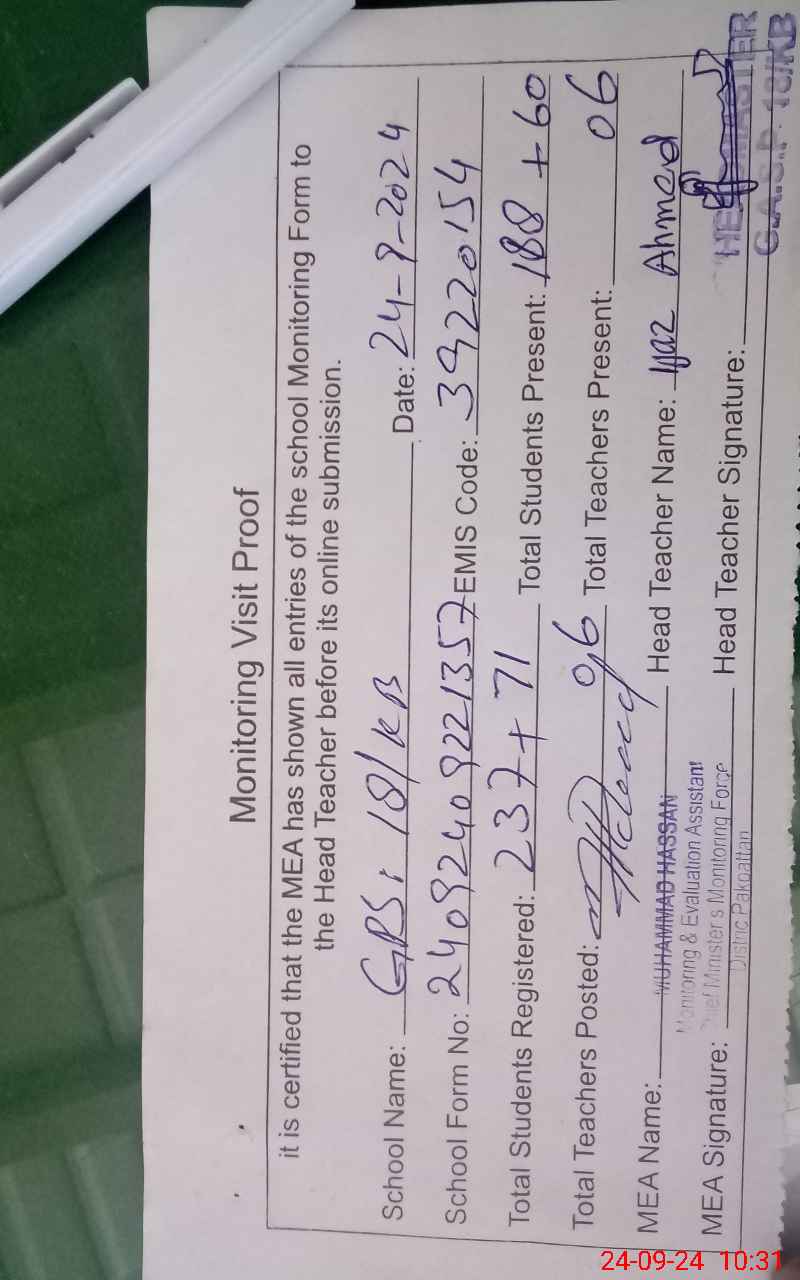 Monitoring Visit Proof
it is certified that the MEA has shown all entries of the school Monitoring Form to
the Head Teacher before its online submission.
School Name: GPS, 18/KB Date: 24-9-2024
School Form No: 24092409221357 EMIS Code: 39220154
Total Students Registered: 237+71 Total Students Present: 188+60
Total Teachers Posted: 06 Total Teachers Present: 06
MEA Name: MUHAMMAD HASSAN Head Teacher Name: Ijaz Ahmed
Monitoring & Evaluation Assistant
Chief Minister's Monitoring Force
Distric Pakpattan
MEA Signature: Head Teacher Signature:
HEADMASTER
18/KB
24-09-24 10:31